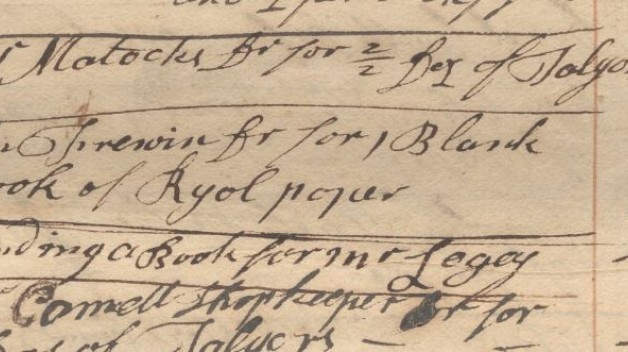 Matocks Dr for 2/2
Trewin Dr for 1 Blank
ook of Ryol paper
nding a Book for mr Legay
Comell Shopkeeper Dr for
of Talyers